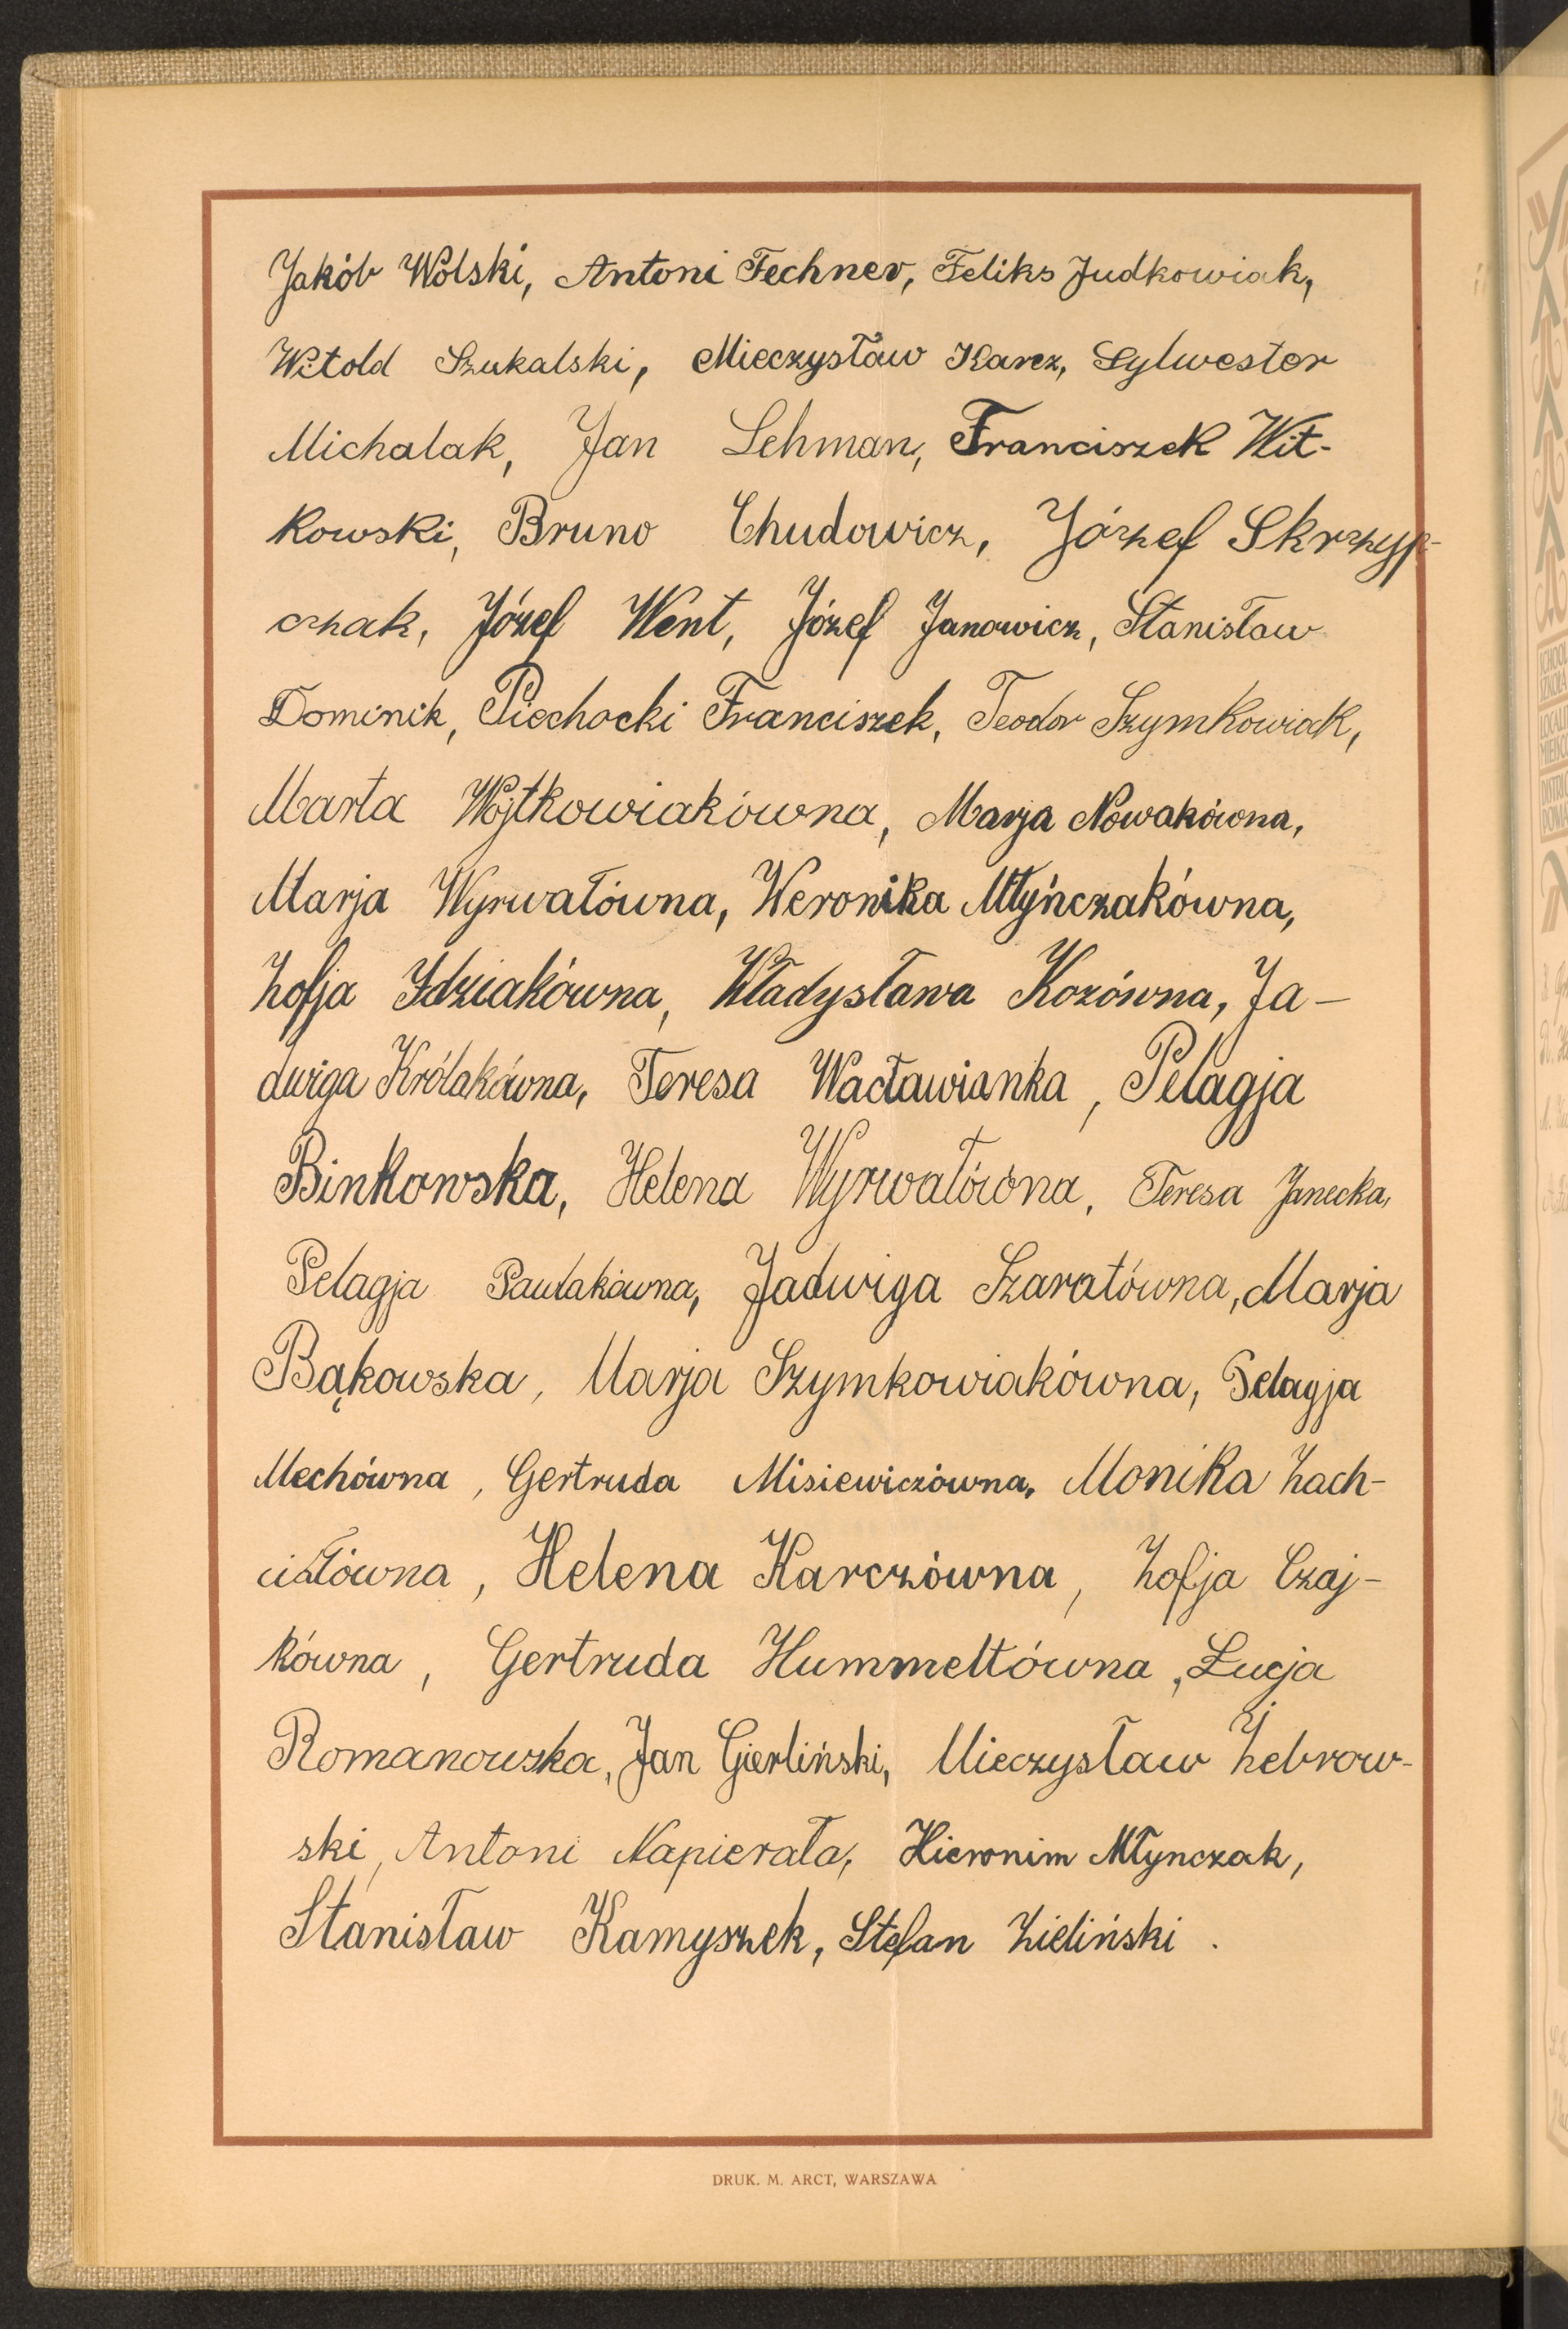 Jakób Wolski, Antoni Fechner, Feliks Judkowiak,
Witold Szukalski, Mieczysław Karcz, Sylwester
Michalak, Jan Lehman, Franciszek Wit-
kowski, Bruno Chudowicz, Józef Skrzyp-
czak, Józef Went, Józef Janowicz, Stanisław
Dominik, Piechocki Franciszek, Teodor Szymkowiak,
Marta Wojtkowiakówna, Marja Nowakówna,
Marja Wyrwałówna, Weronika Młyńczakówna,
Zofja Idziakówna, Władysława Kozówna, Ja-
dwiga Królakówna, Teresa Wacławianka, Pelagja
Binkowska, Helena Wyrwałówna, Teresa Janecka,
Pelagja Pawlakówna, Jadwiga Szarałówna, Marja
Bąkowska, Marja Szymkowiakówna, Pelagja
Mechówna, Gertruda Misiewiczówna, Monika Zach-
Helena Karczówna, Zofja Czaj-
kówna, Gertruda Hummeltówna, Łucja
Romanowska, Jan Gierliński, Mieczysław Żebrow-
ski, Antoni Napierała, Hieronim Młynczak,
Stanisław Kamyszek, Stefan Zieliński.
DRUK. M. ARCT, WARSZAWA